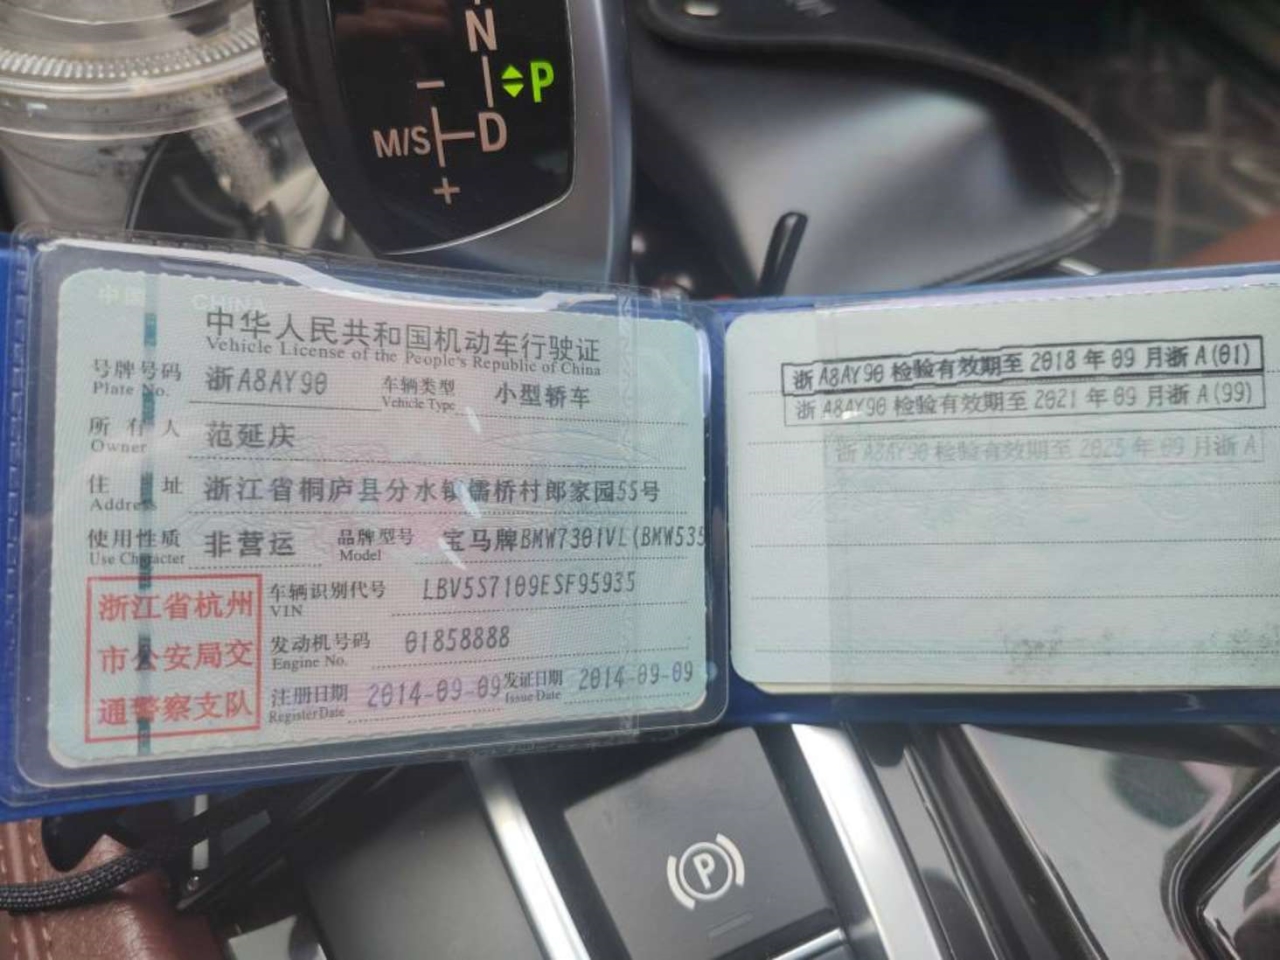 N
P
M/S
D
+
中国 CHINA
中华人民共和国机动车行驶证
Vehicle License of the People's Republic of China
号牌号码 浙A8AY90 车辆类型 小型轿车
Plate No. Vehicle Type
所有人 范延庆
Owner
住址 浙江省桐庐县分水镇儒桥村郎家园55号
Address
使用性质 非营运 品牌型号 宝马牌BMW7301VL(BMW535
Use Character Model
浙江省杭州
市公安局交
通警察支队
车辆识别代号 LBV5S7109ESF95935
VIN
发动机号码 01858888
Engine No.
注册日期 2014-09-09 发证日期 2014-09-09
Register Date Issue Date
浙A8AY90检验有效期至2018年09月浙A(01)
浙A8AY90检验有效期至2021年09月浙A(99)
浙A8AY90检验有效期至2023年09月浙A
P